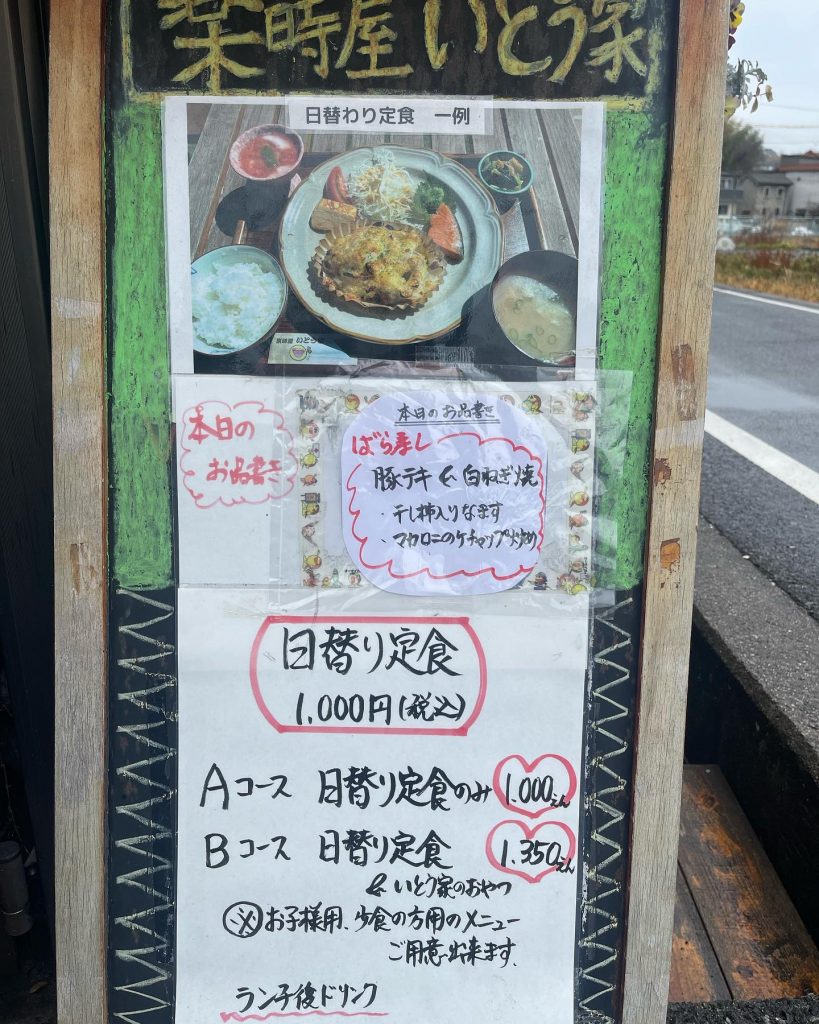 楽時屋 いとう家
日替わり定食 一例
本日の
お品書き
本日のお品書き
ばら寿し
豚テキ & 白ねぎ焼
・干し柿入りなます
・マカロニのケチャップ炒め
日替り定食
1,000円(税込)
Aコース 日替り定食のみ 1.000えん
Bコース 日替り定食 1.350えん
& いとう家のおやつ
※お子様用、少食の方用のメニュー
ご用意出来ます。
ランチ後ドリンク